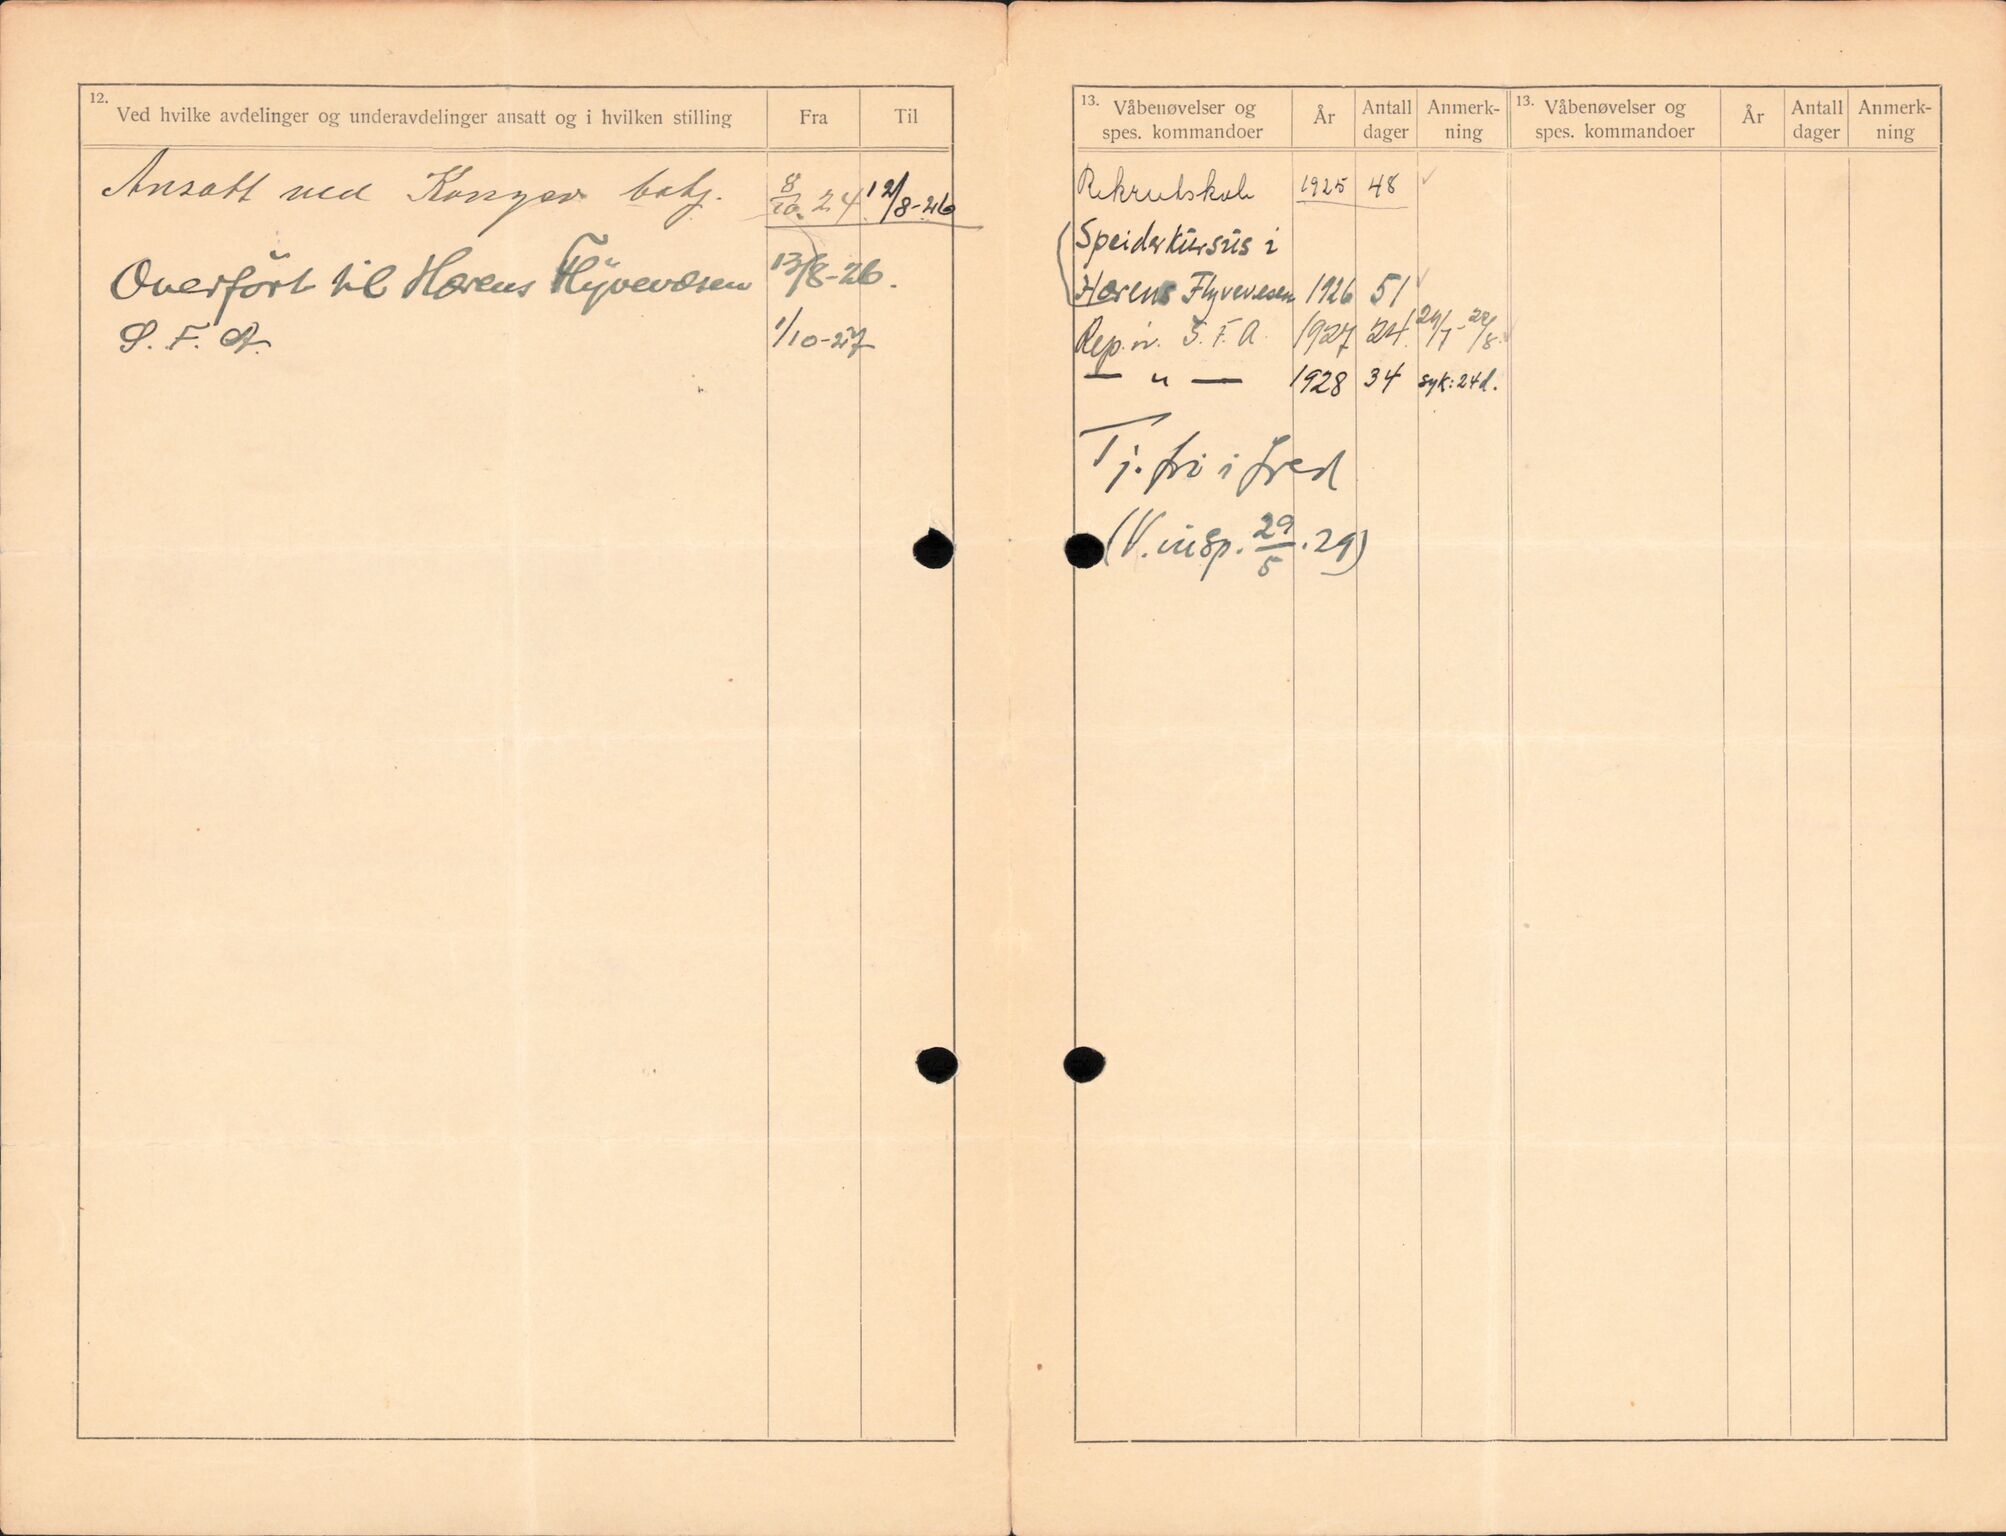 12.
Ved hvilke avdelinger og underavdelinger ansatt og i hvilken stilling Fra Til
Ansatt ved Kongsv. batj. 8/10. 24 12/8-26
Overført til Hærens Flyvevæsen 13/8-26.
S. F. A. 1/10-27
13. Våbenøvelser og spes. kommandoer År Antall dager Anmerkning
13. Våbenøvelser og spes. kommandoer År Antall dager Anmerkning
Rekrutskole 1925 48
Speiderkursus i
Hærens Flyvevesen 1926 51
Rep. v. S. F. A. 1927 24
— " — 1928 34 syk: 24d.
Tj. fri i fred
(V. insp. 29/5. 29)